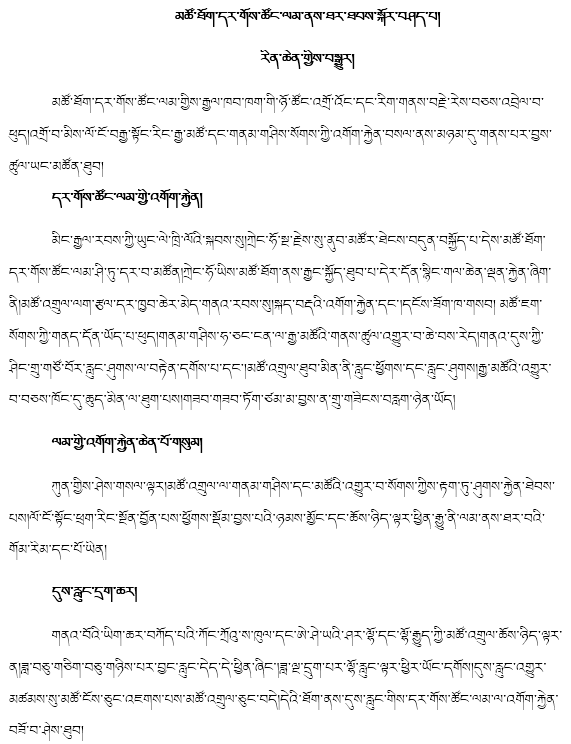 མཚོ་ཐོག་དར་གོས་ཚོང་ལམ་ནས་ཐར་ཐབས་སྐོར་བཤད་པ།
རིན་ཆེན་གྱིས་བསྒྱུར།
མཚོ་ཐོག་དར་གོས་ཚོང་ལམ་གྱིས་རྒྱལ་ཁབ་ཁག་གི་ཉོ་ཚོང་འགྲོ་འོང་དང་རིག་གནས་བརྗེ་རེས་བཅས་འབྲེལ་བ་
ཕུད།འགྲོ་བ་མིས་ལོ་ངོ་བརྒྱ་སྟོང་རིང་རྒྱ་མཚོ་དང་གནམ་གཤིས་སོགས་ཀྱི་འགོག་རྐྱེན་བསལ་ནས་མཉམ་དུ་གནས་པར་བྱས་
ཚུལ་ཡང་མཚོན་ཐུབ།
དར་གོས་ཚོང་ལམ་གྱི་འགོག་རྐྱེན།
མིང་རྒྱལ་རབས་ཀྱི་ཡུང་ལེ་ཁྲི་ལོའི་སྐབས་སུ།ཀྲེང་ཧོ་སྔ་རྗེས་སུ་ནུབ་མཚོར་ཐེངས་བདུན་བསྐྱོད་པ་དེས་མཚོ་ཐོག་
དར་གོས་ཚོང་ལམ་ཤི་ཏུ་དར་བ་མཚོན།ཀྲེང་ཧོ་ཡིས་མཚོ་ཐོག་ནས་རྒྱང་སྐྱོད་ཐུབ་པ་དེར་དོན་སྙིང་གལ་ཆེན་ལྡན་རྐྱེན་ཞིག་
ནི།མཚོ་འགྲུལ་ལག་རྩལ་དར་ཁྱབ་ཆེར་མེད་གནའ་རབས་སུ།སྐད་བརྡའི་འགོག་རྐྱེན་དང་།དངོས་ཟོག་ཁ་གསབ། མཚོ་ཇག་
སོགས་ཀྱི་གནད་དོན་ཡོད་པ་ཕུད།གནམ་གཤིས་ཧ་ཅང་ངན་ལ་རྒྱ་མཚོའི་གནས་ཚུལ་འགྱུར་བ་ཆེ་བས་རེད།གནའ་དུས་ཀྱི་
ཤིང་གྲུ་གཙོ་བོར་རླུང་ཤུགས་ལ་བརྟེན་དགོས་པ་དང་།མཚོ་འགྲུལ་ཐུབ་མིན་ནི་རླུང་ཕྱོགས་དང་རླུང་ཤུགས།རྒྱ་མཚོའི་འགྱུར་
བ་བཅས་ཁོང་དུ་ཆུད་མིན་ལ་ཐུག་པས།གཟབ་གཟབ་ཏོག་ཙམ་མ་བྱས་ན་གྲུ་གཟིངས་བརླག་ཉེན་ཡོད།
ལམ་གྱི་འགོག་རྐྱེན་ཆེན་པོ་གསུམ།
ཀུན་གྱིས་ཤེས་གསལ་ལྟར།མཚོ་འགྲུལ་ལ་གནམ་གཤིས་དང་མཚོའི་འགྱུར་བ་སོགས་ཀྱིས་རྟག་ཏུ་ཤུགས་རྐྱེན་ཐེབས་
པས།ལོ་ངོ་སྟོང་ཕྲག་རིང་སྔོན་བྱོན་པས་ཕྱོགས་སྡོམ་བྱས་པའི་ཉམས་མྱོང་དང་ཆོས་ཉིད་ལྟར་ཕྱིན་རྒྱུ་ནི་ལམ་ནས་ཐར་བའི་
གོམ་རིམ་དང་པོ་ཡིན།
དུས་རླུང་དྲག་ཆར།
གནའ་བོའི་ཡིག་ཆར་བཀོད་པའི་ཀོང་ཀྲོའུ་ས་ཁུལ་དང་ཨེ་ཤེ་ཡའི་ཤར་ལྷོ་དང་ལྷོ་རྒྱུད་ཀྱི་མཚོ་འགྲུལ་ཆོས་ཉིད་ལྟར་
ན།ཟླ་བཅུ་གཅིག་བཅུ་གཉིས་པར་བྱང་རླུང་དེད་དེ་ཕྱིན་ཞིང་།ཟླ་ལྔ་དྲུག་པར་ལྷོ་རླུང་ལྟར་ཕྱིར་ཡོང་དགོས།དུས་རླུང་འགྱུར་
མཚམས་སུ་མཚོ་ངོས་ཅུང་འཇགས་པས་མཚོ་འགྲུལ་ཅུང་བདེ།དེའི་ཐོག་ནས་དུས་རླུང་གིས་དར་གོས་ཚོང་ལམ་ལ་འགོག་རྐྱེན་
བཟོ་བ་ཤེས་ཐུབ།